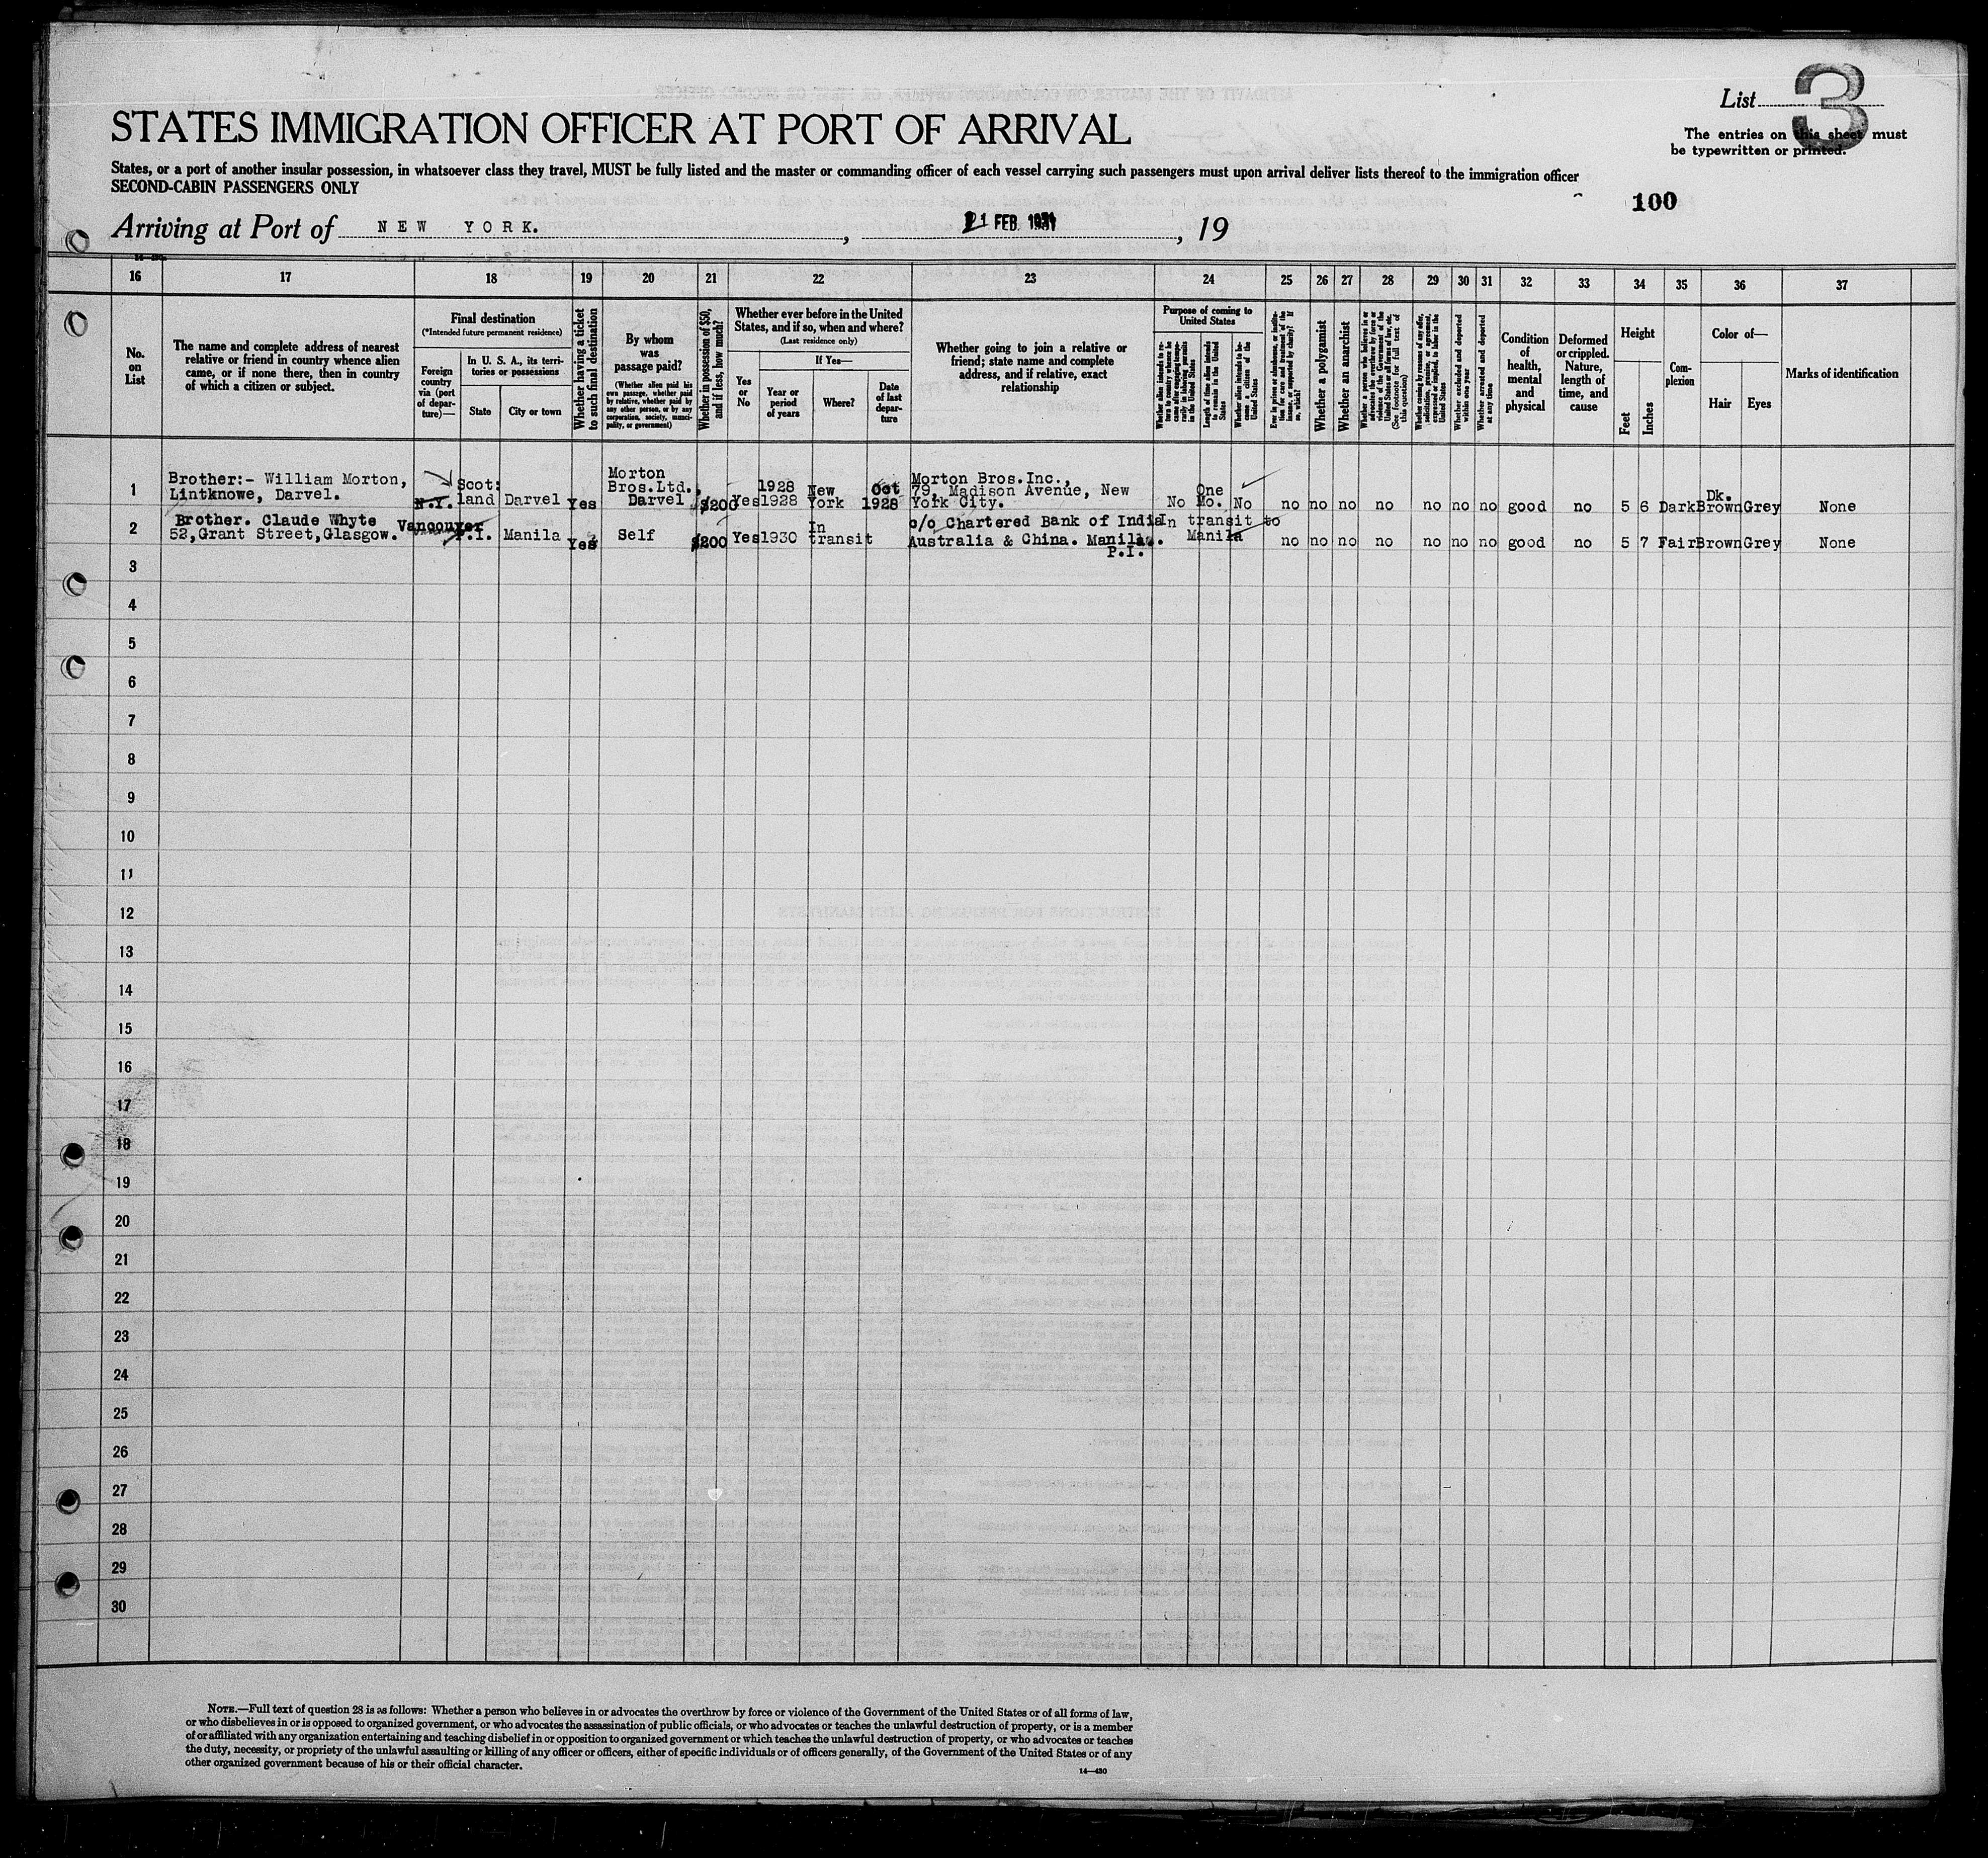 List 3
STATES IMMIGRATION OFFICER AT PORT OF ARRIVAL
The entries on this sheet must
be typewritten or printed.
States, or a port of another insular possession, in whatsoever class they travel, MUST be fully listed and the master or commanding officer of each vessel carrying such passengers must upon arrival deliver lists thereof to the immigration officer
SECOND-CABIN PASSENGERS ONLY
100
Arriving at Port of NEW YORK. , 21 FEB. 1931 , 19
16 17 18 19 20 21 22 23 24 25 26 27 28 29 30 31 32 33 34 35 36 37
No. on List
The name and complete address of nearest relative or friend in country whence alien came, or if none there, then in country of which a citizen or subject.
Final destination
(*Intended future permanent residence)
Foreign country via (port of departure)—
In U. S. A., its territories or possessions
State
City or town
Whether having a ticket to such final destination
By whom was passage paid?
(Whether alien paid his own passage, whether paid by relative, whether paid by any other person, or by any corporation, society, municipality, or government)
Whether in possession of $50, and if less, how much?
Whether ever before in the United States, and if so, when and where?
(Last residence only)
Yes or No
If Yes—
Year or period of years
Where?
Date of last departure
Whether going to join a relative or friend; state name and complete address, and if relative, exact relationship
Purpose of coming to United States
Whether alien intends to return to country whence he came after engaging temporarily in laboring pursuits in the United States
Length of time alien intends to remain in the United States
Whether alien intends to become a citizen of the United States
Ever in prison or almshouse, or institution for care and treatment of the insane, or supported by charity? If so, which?
Whether a polygamist
Whether an anarchist
Whether a person who believes in or advocates the overthrow by force or violence of the Government of the United States or all forms of law, etc. (See footnote for full text of this question)
Whether coming by reason of any offer, solicitation, promise, or agreement, expressed or implied, to labor in the United States
Whether excluded and deported within one year
Whether arrested and deported at any time
Condition of health, mental and physical
Deformed or crippled. Nature, length of time, and cause
Height
Feet
Inches
Complexion
Color of—
Hair
Eyes
Marks of identification
1 Brother:- William Morton, Lintknowe, Darvel. N.Y. Scot: land Darvel Yes Morton Bros.Ltd., Darvel $200 Yes 1928 1928 New York Oct 1928 Morton Bros.Inc., 79, Madison Avenue, New York City. No One Mo. No no no no no no no no good no 5 6 Dark Dk. Brown Grey None
2 Brother. Claude Whyte 52,Grant Street,Glasgow. Vancouver P.I. Manila Yes Self $200 Yes 1930 In transit c/o Chartered Bank of India Australia & China. Manila. P.I. In transit to Manila no no no no no no no good no 5 7 Fair Brown Grey None
3
4
5
6
7
8
9
10
11
12
13
14
15
16
17
18
19
20
21
22
23
24
25
26
27
28
29
30
NOTE.—Full text of question 28 is as follows: Whether a person who believes in or advocates the overthrow by force or violence of the Government of the United States or of all forms of law,
or who disbelieves in or is opposed to organized government, or who advocates the assassination of public officials, or who advocates or teaches the unlawful destruction of property, or is a member
of or affiliated with any organization entertaining and teaching disbelief in or opposition to organized government or which teaches the unlawful destruction of property, or who advocates or teaches
the duty, necessity, or propriety of the unlawful assaulting or killing of any officer or officers, either of specific individuals or of officers generally, of the Government of the United States or of any
other organized government because of his or their official character.
14—430